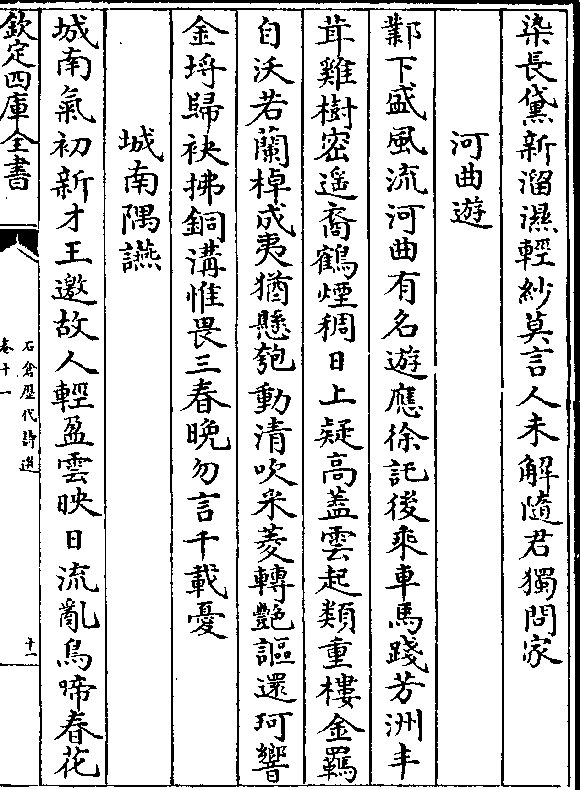 染長黛新溜濕輕紗莫言人未解隨君獨問家
河曲遊
鄴下盛風流河曲有名遊應徐託後乘車馬踐芳洲丰
茸雞樹密遥裔鶴煙稠日上疑高蓋雲起類重樓金羈
自沃若蘭棹成夷猶懸匏動清吹采菱轉艶謳還珂響
金埒歸袂拂銅溝惟畏三春晚勿言千載憂
城南隅讌
城南氣初新才王邀故人輕盈雲映日流亂鳥啼春花
欽定四庫全書
石倉歷代詩選
卷十一
十一